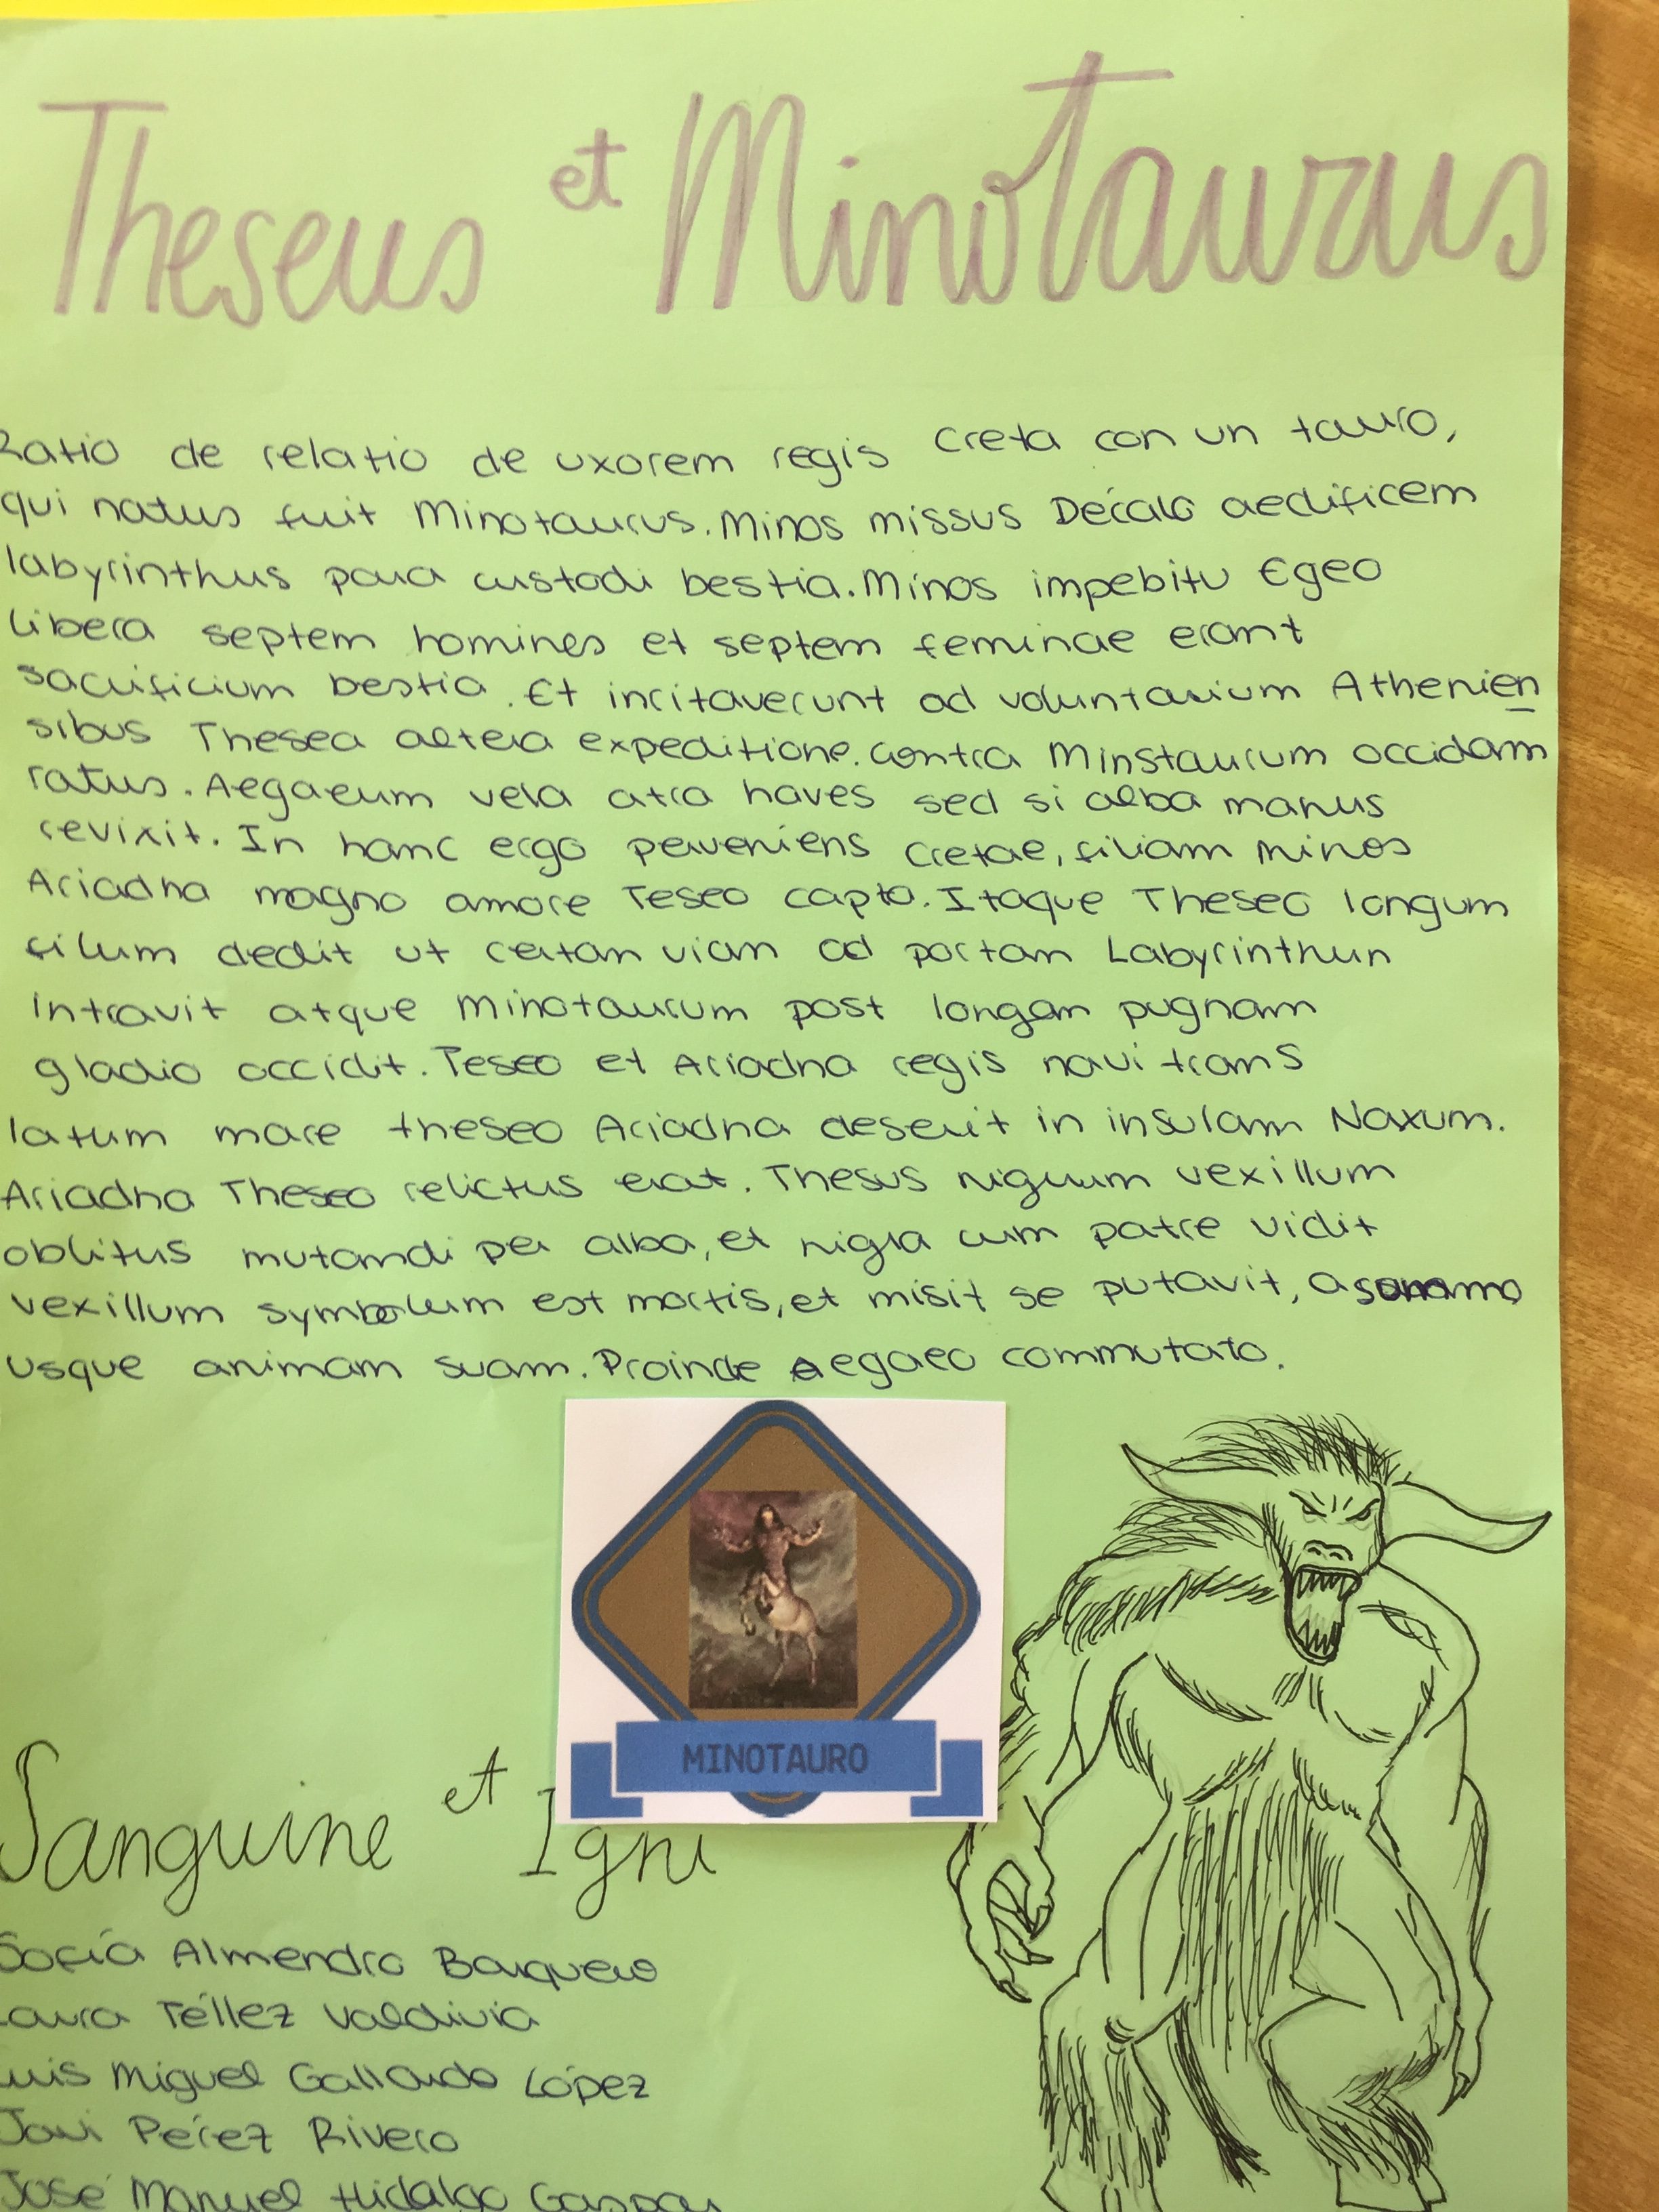 Theseus et Minotaurus
Ratio de relatio de uxorem regis Creta con un tauro,
qui natus fuit Minotaurus. Minos missus Décalo aedificem
labyrinthus para custodi bestia. Minos impebitu Egeo
libera septem homines et septem feminae erant
sacrificium bestia. Et incitaverunt ad voluntarium Athenien
sibus Thesea altera expeditione. Contra Minstaurum occidam
ratus. Aegaeum vela atra haves sed si alba manus
revixit. In hanc ergo perveniens Cretae, filiam Minos
Ariadna magno amore Teseo capto. Itaque Theseo longum
filum dedit ut certan vian ad portam Labyrinthun
intravit atque Minotaurum post longam pugnam
gladio occidit. Teseo et Ariadna regis navi trans
latum mare theseo Ariadna deserit in insulam Naxum.
Ariadna Theseo relictus erat. Thesus nigrum vexillum
oblitus mutandi per alba, et nigra cum patre vidit
vexillum symbolum est mortis, et misit se putavit,
usque animam suam. Proinde Aegaeo commutato.
MINOTAURO
Sanguine et Igni
Sofía Almendro Barquero
Laura Téllez Valdivia
Luis Miguel Gallardo López
Javi Pérez Rivero
José Manuel Hidalgo Gaspar